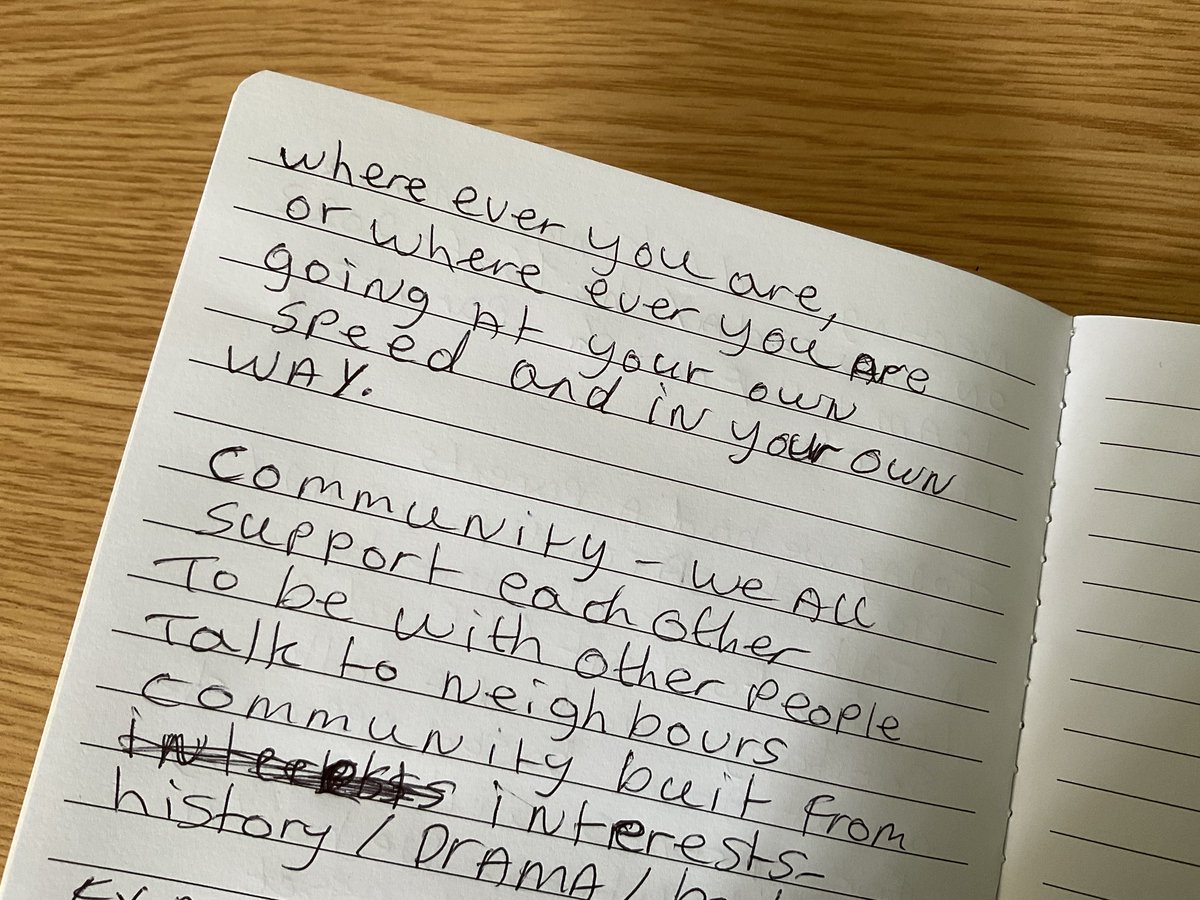 where ever you are,
or where ever you are
going At your own
speed and in your own
WAY.
Community - We All
support each other
To be with other people
Talk to neighbours
community buit from
interests-
history / DRAMA /